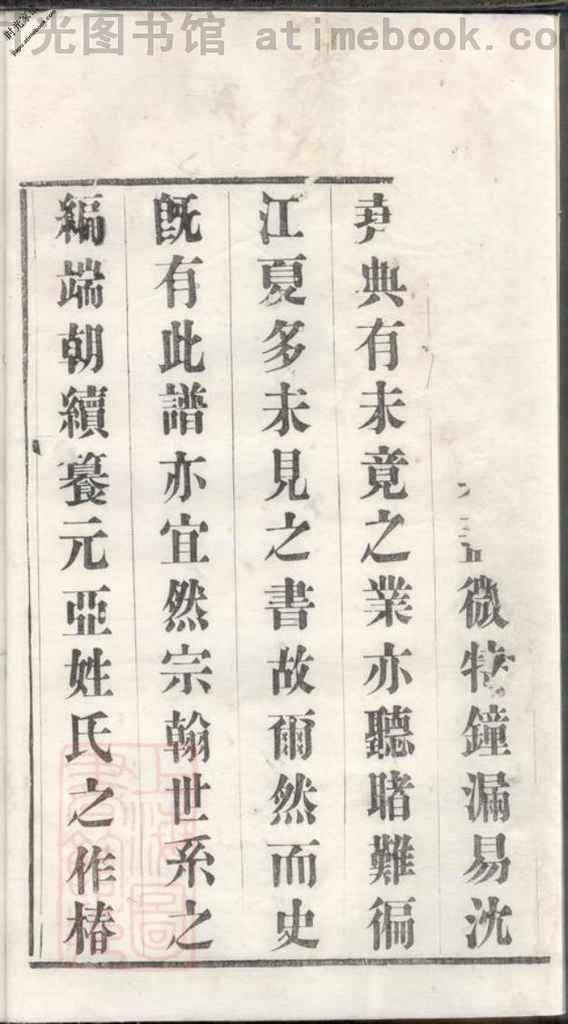 时光图书馆 atimebook.co
微特鐘漏易沈
尹典有未竟之業亦聽睹難徧
江夏多未見之書故爾然而史
旣有此譜亦宜然宗翰世系之
編端朝續養元亞姓氏之作椿